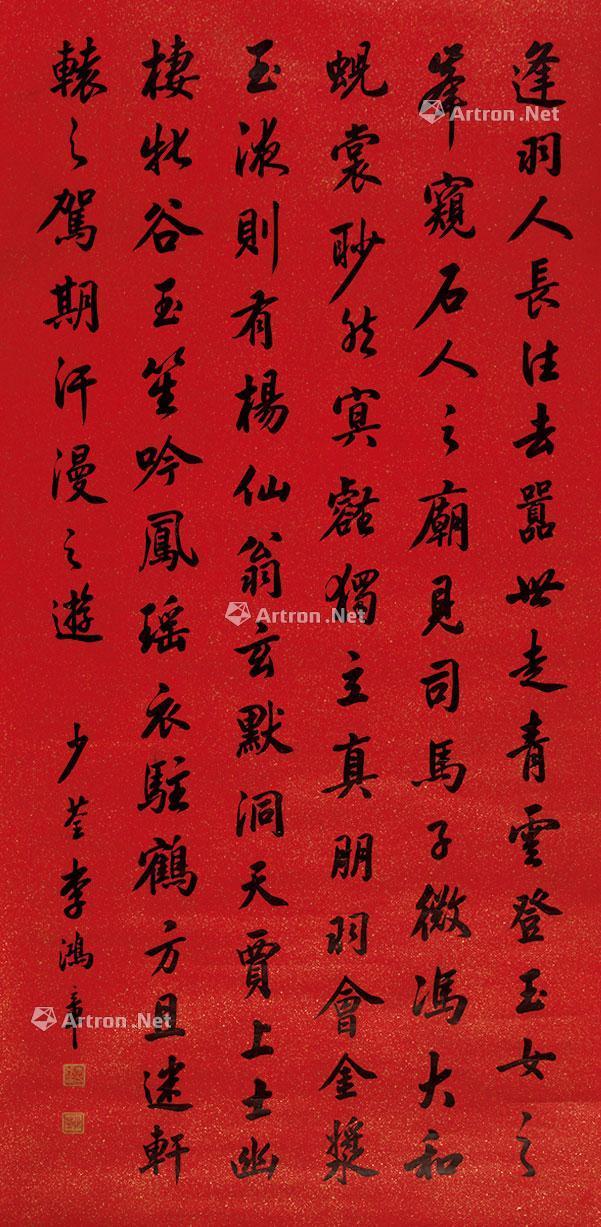 逢羽人長往去囂世走青雲登玉女之
峯窺石人之廟見司馬子微馮大和
蜺裳眇然冥壑獨立真朋羽會金漿
玉液則有楊仙翁玄默洞天賈上士幽
棲牝谷玉笙吟鳳瑶衣駐鶴方且迷軒
轅之駕期汗漫之遊
少荃李鴻章
Artron.Net
Artron.Net
Artron.Net